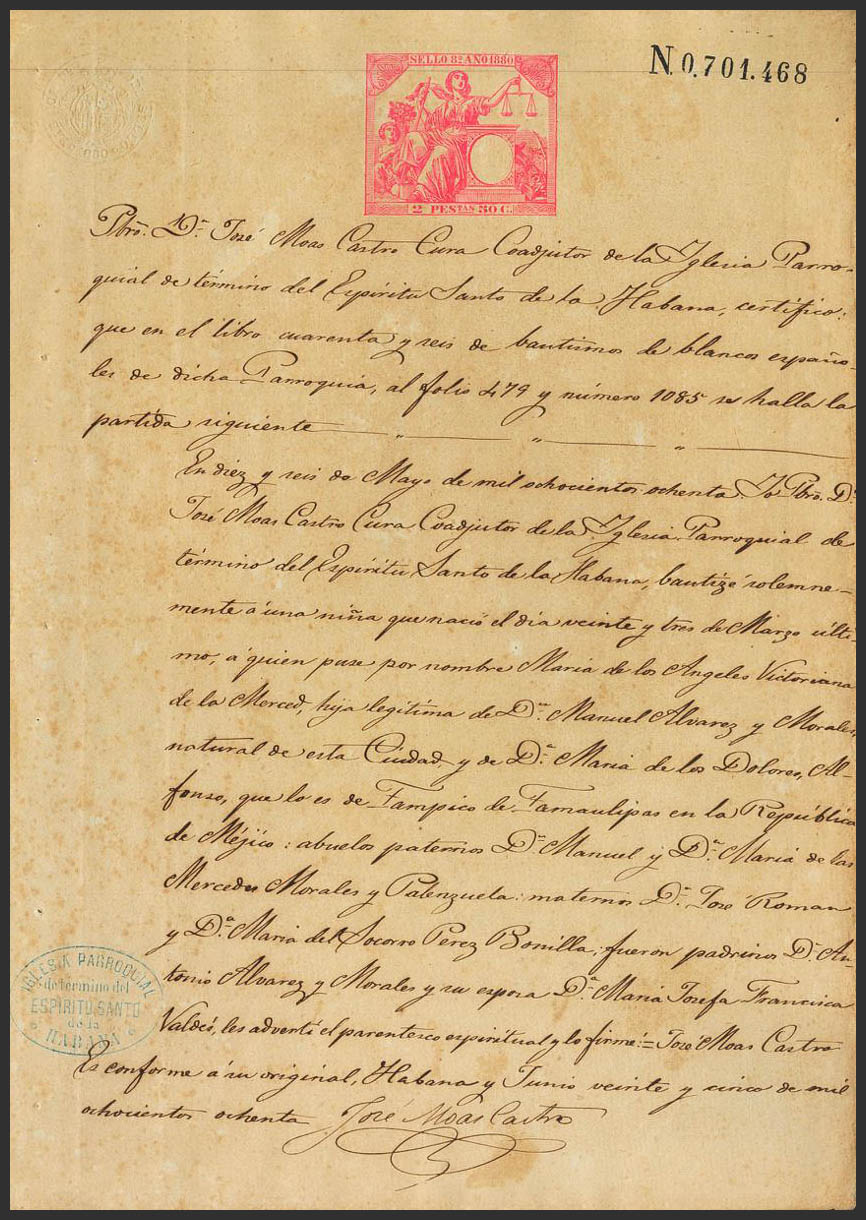 SELLO 8º AÑO 1880
N 0.701.468
2 PESTAS 50 C.
Pbro. Dn. José Moas Castro Cura Coadjutor de la Iglesia Parro-
quial de término del Espíritu Santo de la Habana, certifico:
que en el libro cuarenta y seis de bautismos de blancos españo-
les de dicha Parroquia, al folio 479 y número 1085 se halla la
partida siguiente
En diez y seis de Mayo de mil ochocientos ochenta Yo Pbro. Dn.
José Moas Castro Cura Coadjutor de la Iglesia Parroquial de
término del Espíritu Santo de la Habana, bautizé solemne-
mente a una niña que nació el día veinte y tres de Marzo últi-
mo, á quien puse por nombre Maria de los Angeles Victoriana
de la Merced, hija legítima de Dn. Manuel Alvarez y Morales,
natural de esta Ciudad y de Da. Maria de los Dolores, Al-
fonso, que lo es de Tampico de Tamaulipas en la República
de Méjico: abuelos paternos Dn. Manuel y Da. Maria de las
Mercedes Morales y Palenzuela: maternos Dn. José Roman
y Da. Maria del Socorro Perez Bonilla; fueron padrinos Dn. An-
tonio Alvarez y Morales y su esposa Da. Maria Josefa Francisca
Valdés, les advertí el parentesco espiritual y lo firmé:=José Moas Castro
IGLESIA PARROQUIAL
de término del
ESPIRITU SANTO
de la
HABANA
Es conforme á su original, Habana y Junio veinte y cinco de mil
ochocientos ochenta José Moas Castro